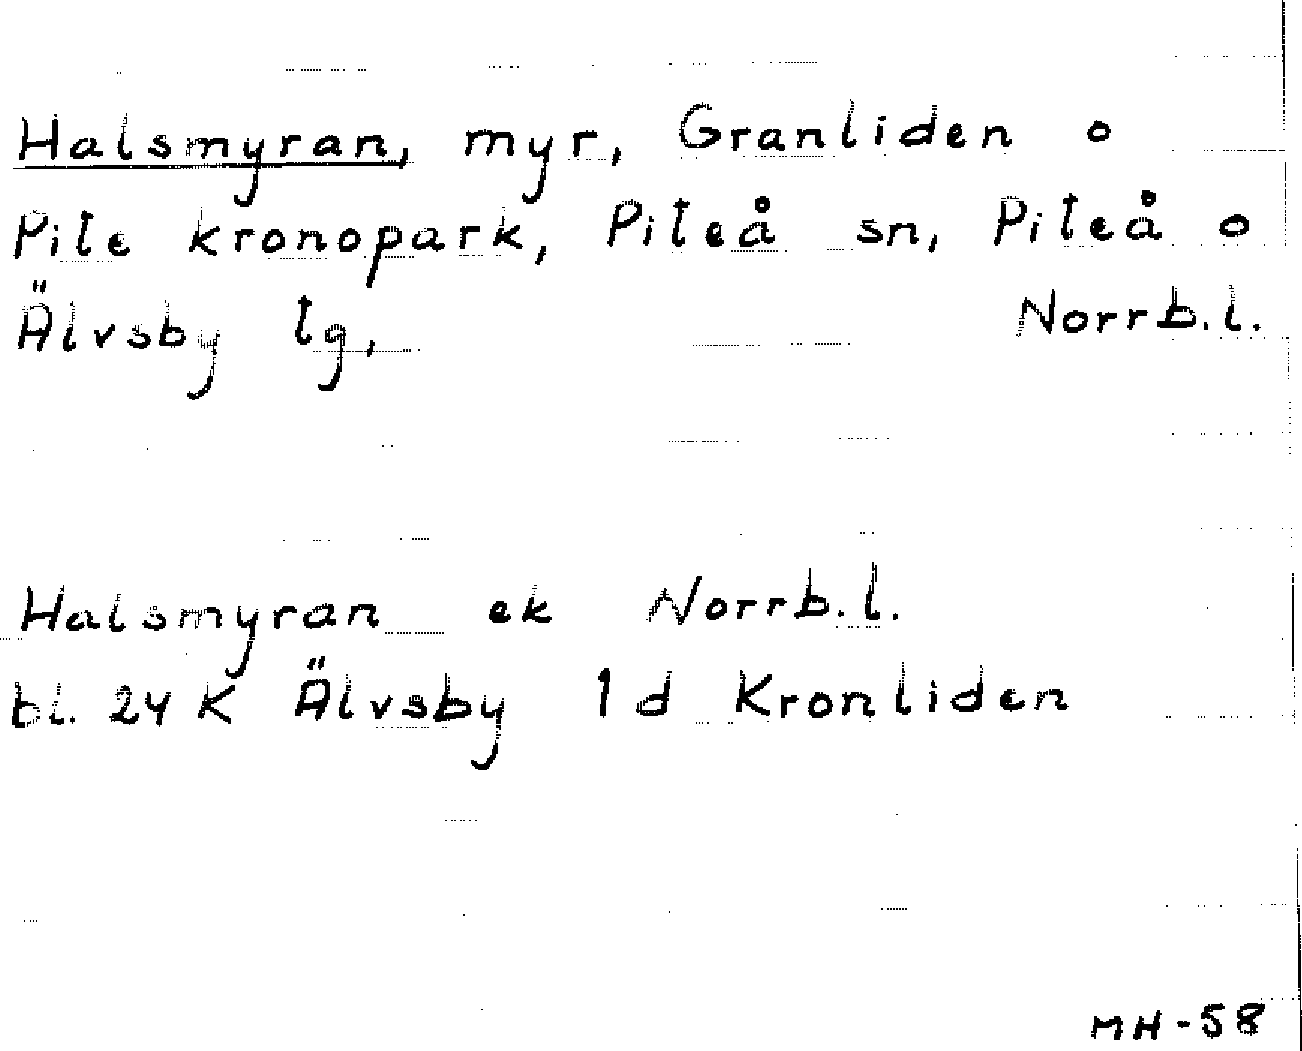 Halsmyran, myr, Granliden o
Pite kronopark, Piteå sn, Piteå o
Älvsby tg, Norrb.l.
Halsmyran ek Norrb.l.
bl. 24 K Älvsby 1 d Kronliden
MH-58